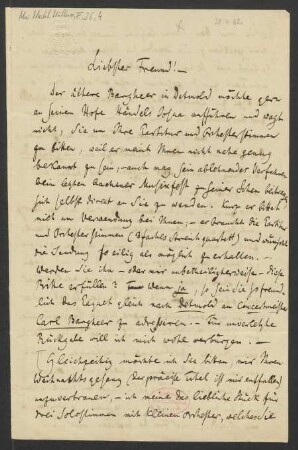 Liebster Freund! —
Der ältere Bargheer in Detmold möchte gern
an seinem Hofe Händels Josua aufführen und wagt
nicht, Sie um Ihre Partitur und Orchesterstimmen
zu bitten, weil er meint Ihnen nicht nahe genug
bekannt zu sein, — auch mag sein ablehnendes Verfahren
beim letzten Aachener Musikfest
sich selbst direct an Sie zu wenden. Kurz er bittet
mich um Verwendung bei Ihnen, — er braucht die Partitur
und Orchesterstimmen (Streichquartett) und wünscht
die Sendung so eilig als möglich zu erhalten. —
Werden Sie ihm — oder mir — diese
Bitte erfüllen? — Wenn ja, so sein Sie so freund-
lich das Paquet gleich nach Detmold an Concertmeister
Carl Bargheer zu adressiren. — Für unverletzte
Rückgabe will ich mich wohl verbürgen. —
Gleichzeitig möchte ich Sie bitten, mir Ihren
Weihnachtsgesang (der präcise Titel ist mir entfallen)
anzuvertrauen, — ich meine das liebliche Stück für
drei Solostimmen mit kleinem Orchester, welches Sie